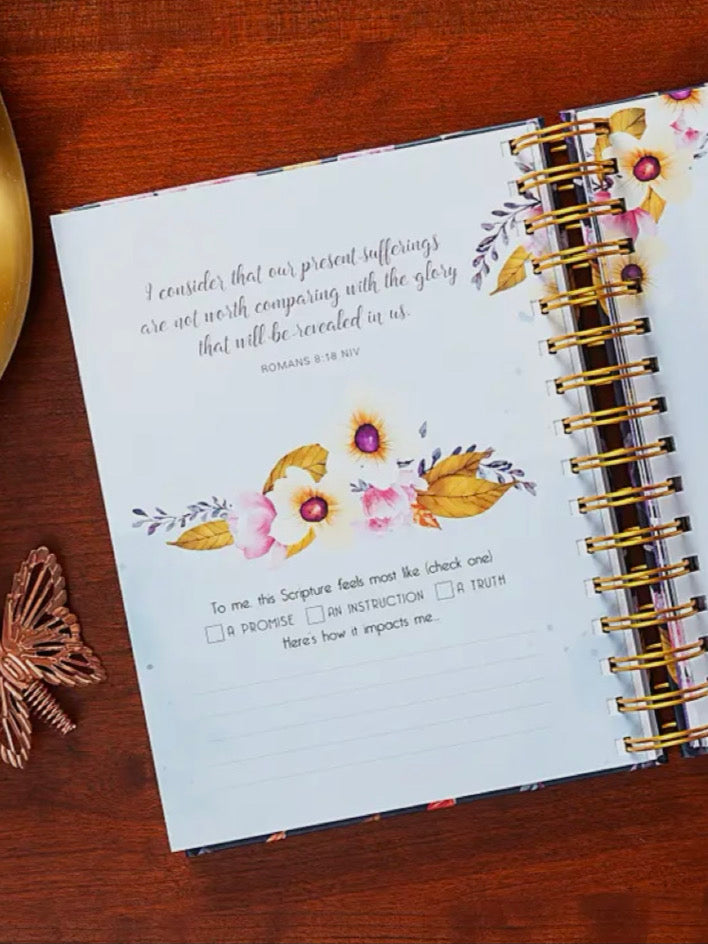 I consider that our present sufferings
are not worth comparing with the glory
that will be revealed in us.
ROMANS 8:18 NIV
To me, this Scripture feels most like (check one)
A PROMISE AN INSTRUCTION A TRUTH
Here's how it impacts me...